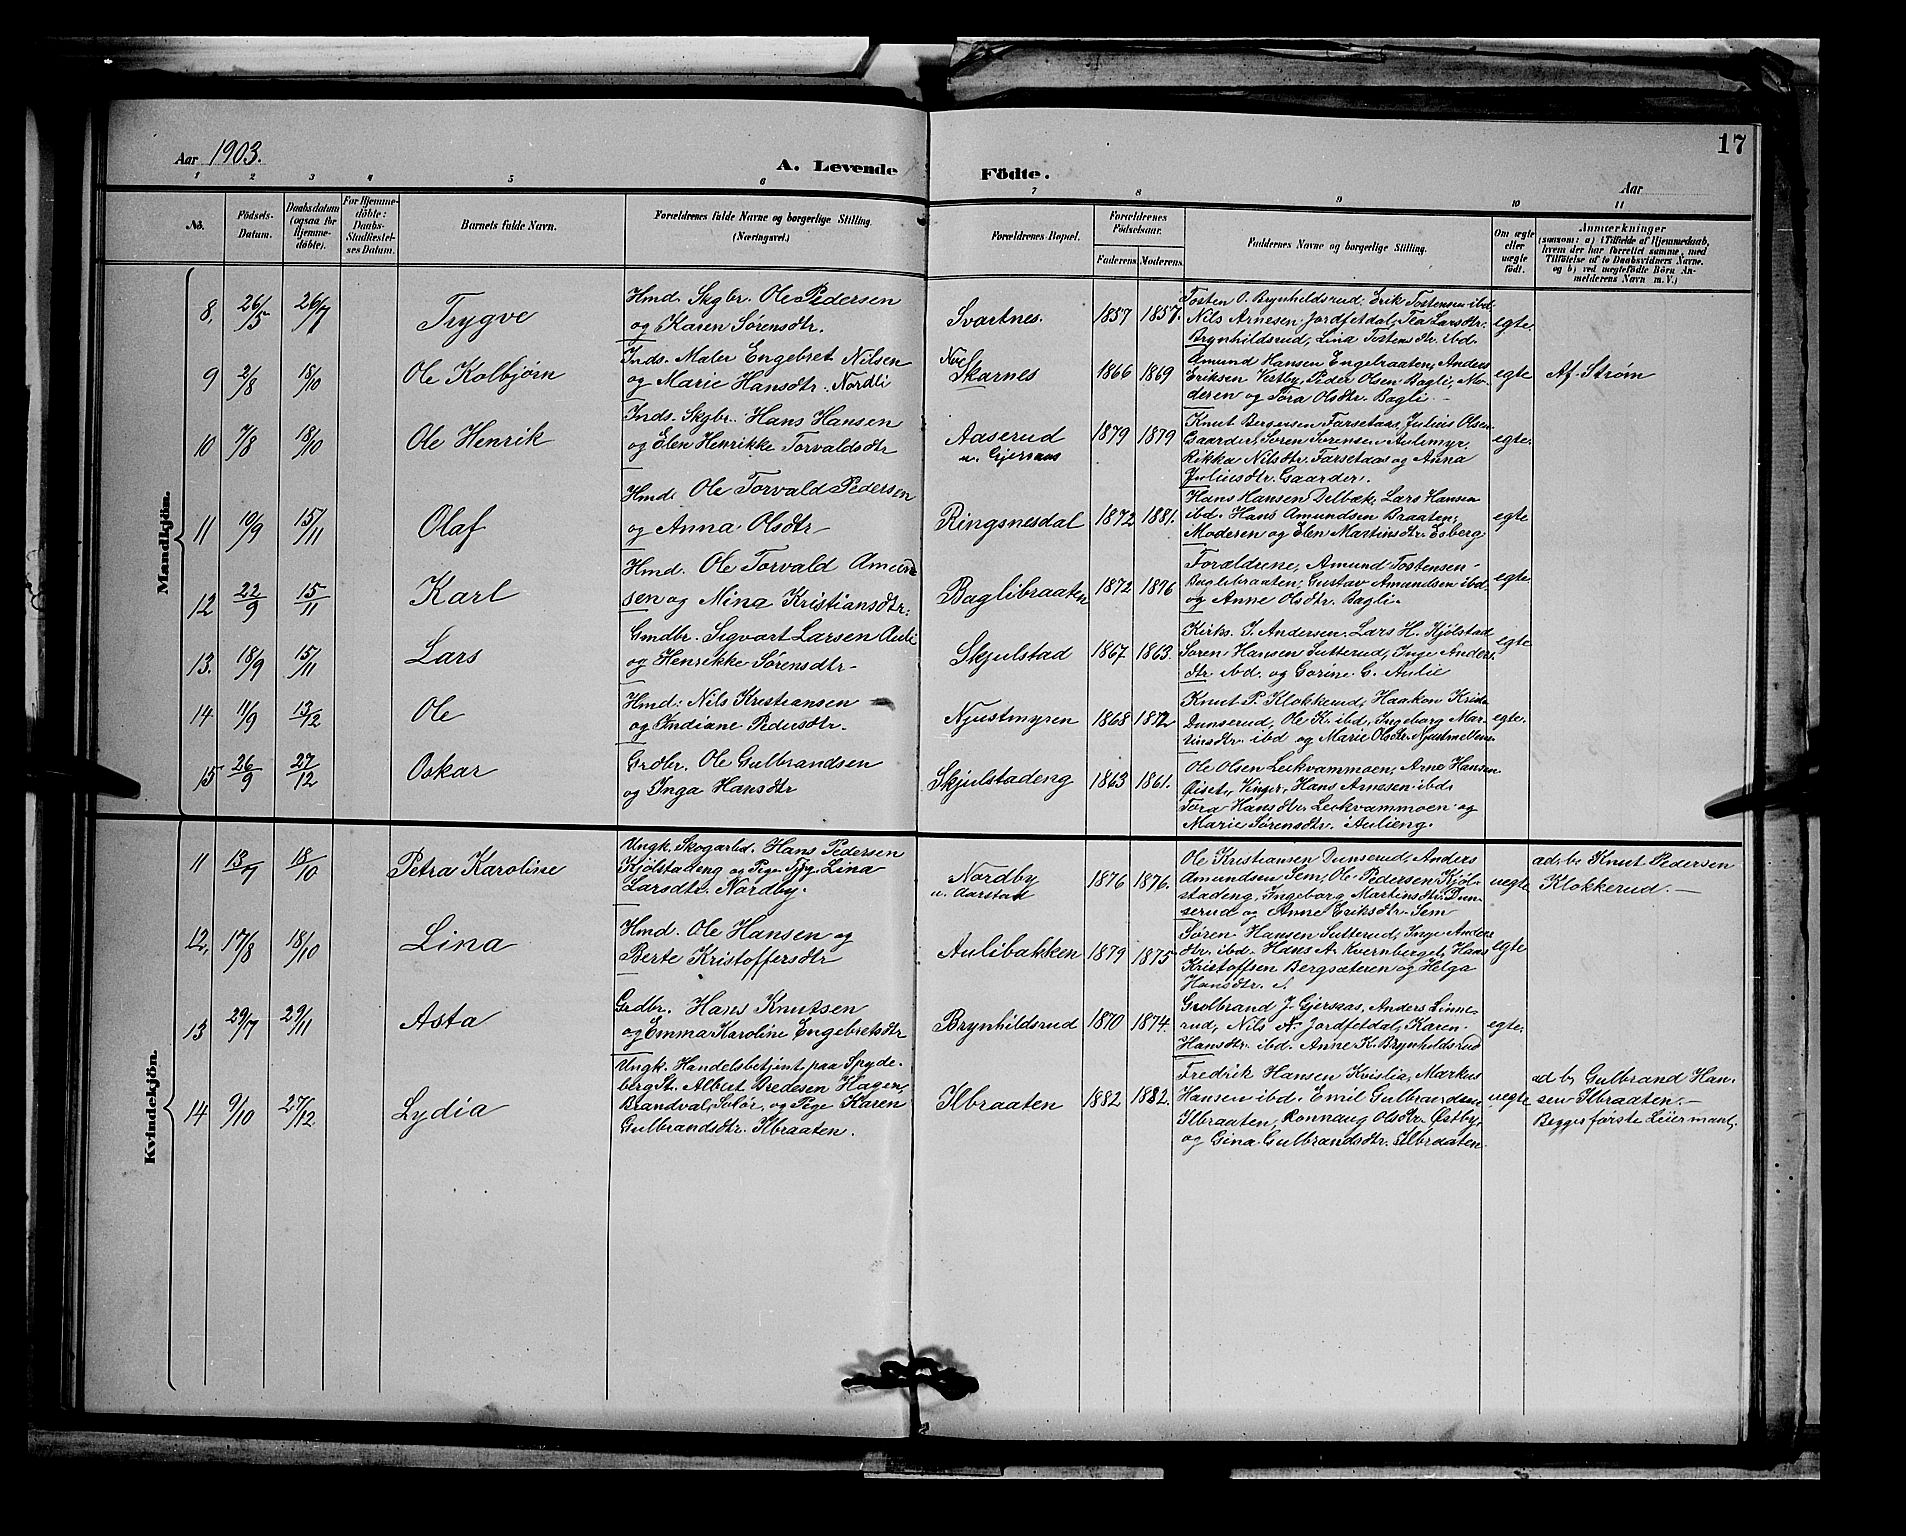 Aar 1903.
A. Levende Födte.
17
Aar
1 2 3 4 5 6 7 8 9 10 11
No.
Födsels-
Datum.
Daabsdatum
(ogsaa for
Hjemme-
döbte).
For Hjemme-
döbte:
Daabs-
Stadfæstel-
ses Datum.
Barnets fulde Navn.
Forældrenes fulde Navne og borgerlige Stilling.
(Næringsvei.)
Forældrenes Bopæl.
Forældrenes
Födselsaar.
Faderens. Moderens.
Faddernes Navne og borgerlige Stilling.
Om ægte
eller
uægte
født.
Anmærkninger
(saasom: a) i Tilfælde af Hjemmedaab,
hvem der har forrettet samme, med
Tilföielse af to Daabsvidners Navne,
og b) ved uægtefödte Börn An-
melderens Navn m. V.)
Mandkjön.
8, 26/5 26/7 Trygve
Hmd. Skgbr. Ole Pedersen
og Karen Sørensdtr.
Svartnes. 1857 1857.
Tosten O. Brynhildsrud, Erik Tostensen ibd.
Nils Arnesen Jordfetdal, Tea Larsdtr.
Brynhildsrud, Lina Tostensdtr ibd.
egte.
9 2/8 18/10 Ole Kolbjørn
Inds. Maler Engebret Nilsen
og Marie Hansdtr. Nordli
Skarnes 1866 1869
Amund Hansen Engelraaten, Anders
Eriksen Vestby, Peder Olsen Bagli, Mo-
deren og Tora Olsdtr. Bagli.
egte Af. Strøm
10 7/8 18/10 Ole Henrik
Inds. Skgbr. Hans Hansen
og Elen Henrikke Torvaldsdtr
Aaserud
u. Gjersaas
1879 1879
Knut Bergersen Farsetaas, Julius Olsen
Gaarder, Søren Sørensen Aulimyr,
Rikka Nilsdtr. Farsetaas og Anna
Juliusdtr. Gaarder.
egte.
11 10/9 15/11 Olaf
Hmd. Ole Torvald Pedersen
og Anna Olsdtr
Ringsnesdal 1872 1881.
Hans Hansen Delbæk, Lars Hansen
ibd. Hans Amundsen Braaten,
Moderen og Elen Martinsdtr. Esberg
egte
12 22/9 15/11 Karl
Hmd. Ole Torvald Amund
sen og Nina Kristiansdtr.
Baglibraaten 1872 1876
Forældrene, Amund Tostensen
Baglibraaten, Gustav Amundsen ibd.
og Anne Olsdtr. Bagli.
egte.
13. 18/9 15/11 Lars
Gmdbr. Sigvart Larsen Auli
og Henrikke Sørensdtr
Skjulstad 1867. 1863.
Kirks. J. Andersen, Lars H. Kjølstad
Søren Hansen Sutterud, Inge Anders
dtr ibd. og Gorine G. Aulie
egte.
14 11/9 13/12 Ole
Hmd. Nils Kristiansen
og Indiane Pedersdtr.
Njustmyren 1868 1872
Knut P. Klokkerud, Haakon Krist.
Dunserud, Ole K. ibd, Ingeborg Mar-
tinsdtr. ibd og Marie Olsdtr.
egte.
15 26/9 27/12 Oskar
Grdbr. Ole Gulbrandsen
og Inga Hansdtr
Skjulstadeng 1863 1861.
Ole Olsen Leekvammoen, Arne Hansen
Øiset, Vinger, Hans Arnesen ibd.
Tora Hansdtr. Leekvammoen og
Marie Sørensdtr. Aulieng.
Kvindekjön.
11 13/7 18/10 Petra Karoline
Ungk. Skogarbd. Hans Pedersen
Kjølstadeng og Pige Lina
Larsdtr. Nordby.
Nordby
u. Aarstad
1876 1876.
Ole Kristiansen Dunserud, Anders
Amundsen Sem, Ole Pedersen Kjøl-
stadeng, Ingeborg Martinsdtr. Dun-
serud og Anne Eriksdtr. Sem
uegte
ad. b. Knut Pedersen
Klokkerud.
12, 17/8 18/10 Lina
Hmd. Ole Hansen og
Berte Kristoffersdtr
Aulibakken 1879 1875
Søren Hansen Sutterud, Inge Anders
dtr. ibd. Hans A. Kvernberget, Hans
Kristoffsen Bergsæteren og Helga
Hansdtr.
egte
13 29/7 29/11 Asta
Grdbr. Hans Knutsen
og Emma Karoline Engebretsdtr
Brynhildsrud 1870 1874.
Gulbrand J. Gjersaas, Anders Linne-
rud, Nils A. Jordfetdal, Karen
Hansdtr. ibd. Anne K. Brynhildsrud
egte.
14 9/10 27/12 Lydia
Ungk. Handelsbetjent paa Spyde-
berg St. Albert Bredesen Hagen,
Brandval, Solør, og Pige Karen
Gulbrandsdtr. Ilbraaten.
Ilbraaten 1882 1882.
Fredrik Hansen Kvislia, Markus
Hansen ibd. Emil Gulbrandsen
Ilbraaten, Ronnaug Olsdtr. Østby,
og Gina Gulbrandsdtr. Ilbraaten.
uegte
ad b, Gulbrand Han-
sen Ilbraaten.
Begges første Leiermaal,